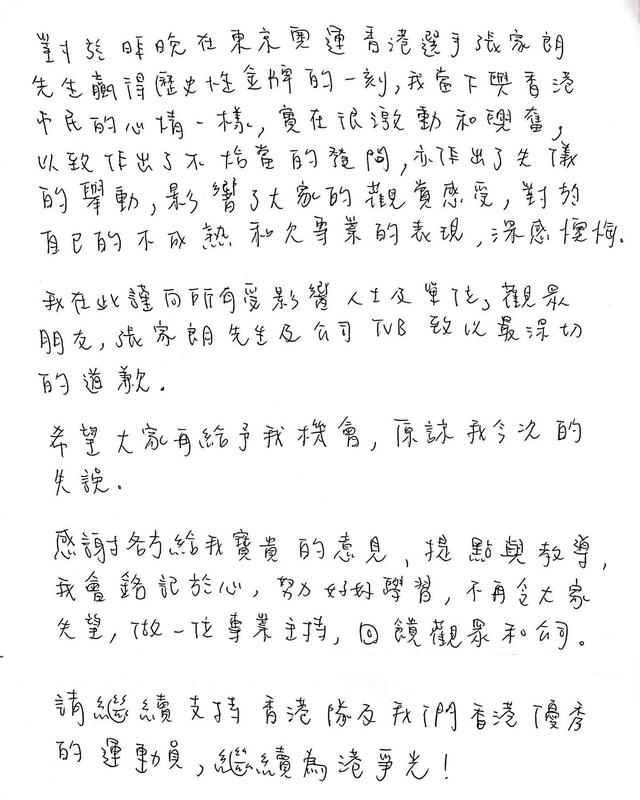 對於昨晚在東京奧運香港選手張家朗
先生贏得歷史性金牌的一刻,我當下與香港
市民的心情一樣,實在很激動和興奮,
以致作出了不恰當的發問,亦作出了失儀
的舉動,影響了大家的觀賞感受,對於
自己的不成熟和欠專業的表現,深感懊悔.
我在此謹向所有受影響人士及單位,觀眾
朋友,張家朗先生及公司TVB致以最深切
的道歉.
希望大家再給予我機會,原諒我今次的
失誤.
感謝各方給我寶貴的意見,提點與教導,
我會銘記於心,努力好好學習,不再令大家
失望,做一位專業主持,回饋觀眾和公司。
請繼續支持香港隊及我們香港優秀
的運動員,繼續為港爭光!